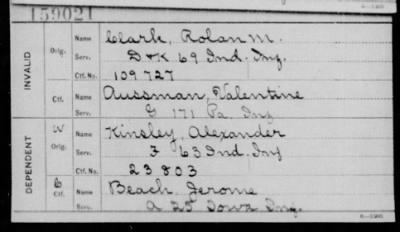 159021
INVALID
Orig.
Name Clark, Rolan M.
Serv. D & K 69 Ind. Inf.
Ctf. No. 109727
Ctf.
Name Aussman, Valentine
Serv. G 171 Pa. Inf
DEPENDENT
W
Orig.
Name Kinsley, Alexander
Serv. F 63 Ind. Inf
Ctf. No. 23803
C
Ctf.
Name Beach, Jerome
Serv. A 25 Iowa Inf.